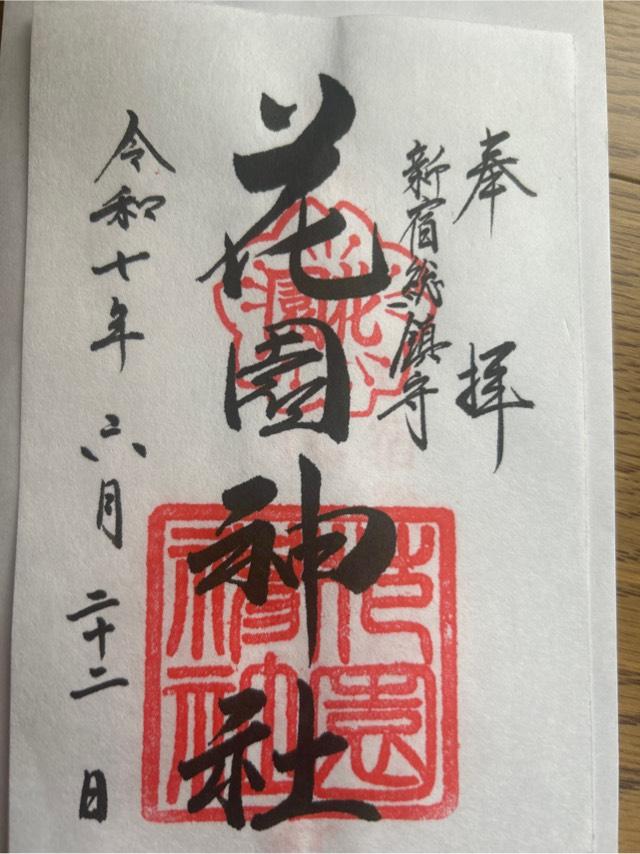 奉拝
新宿総鎮守
花園神社
花園
花園神社
令和十年六月二十二日